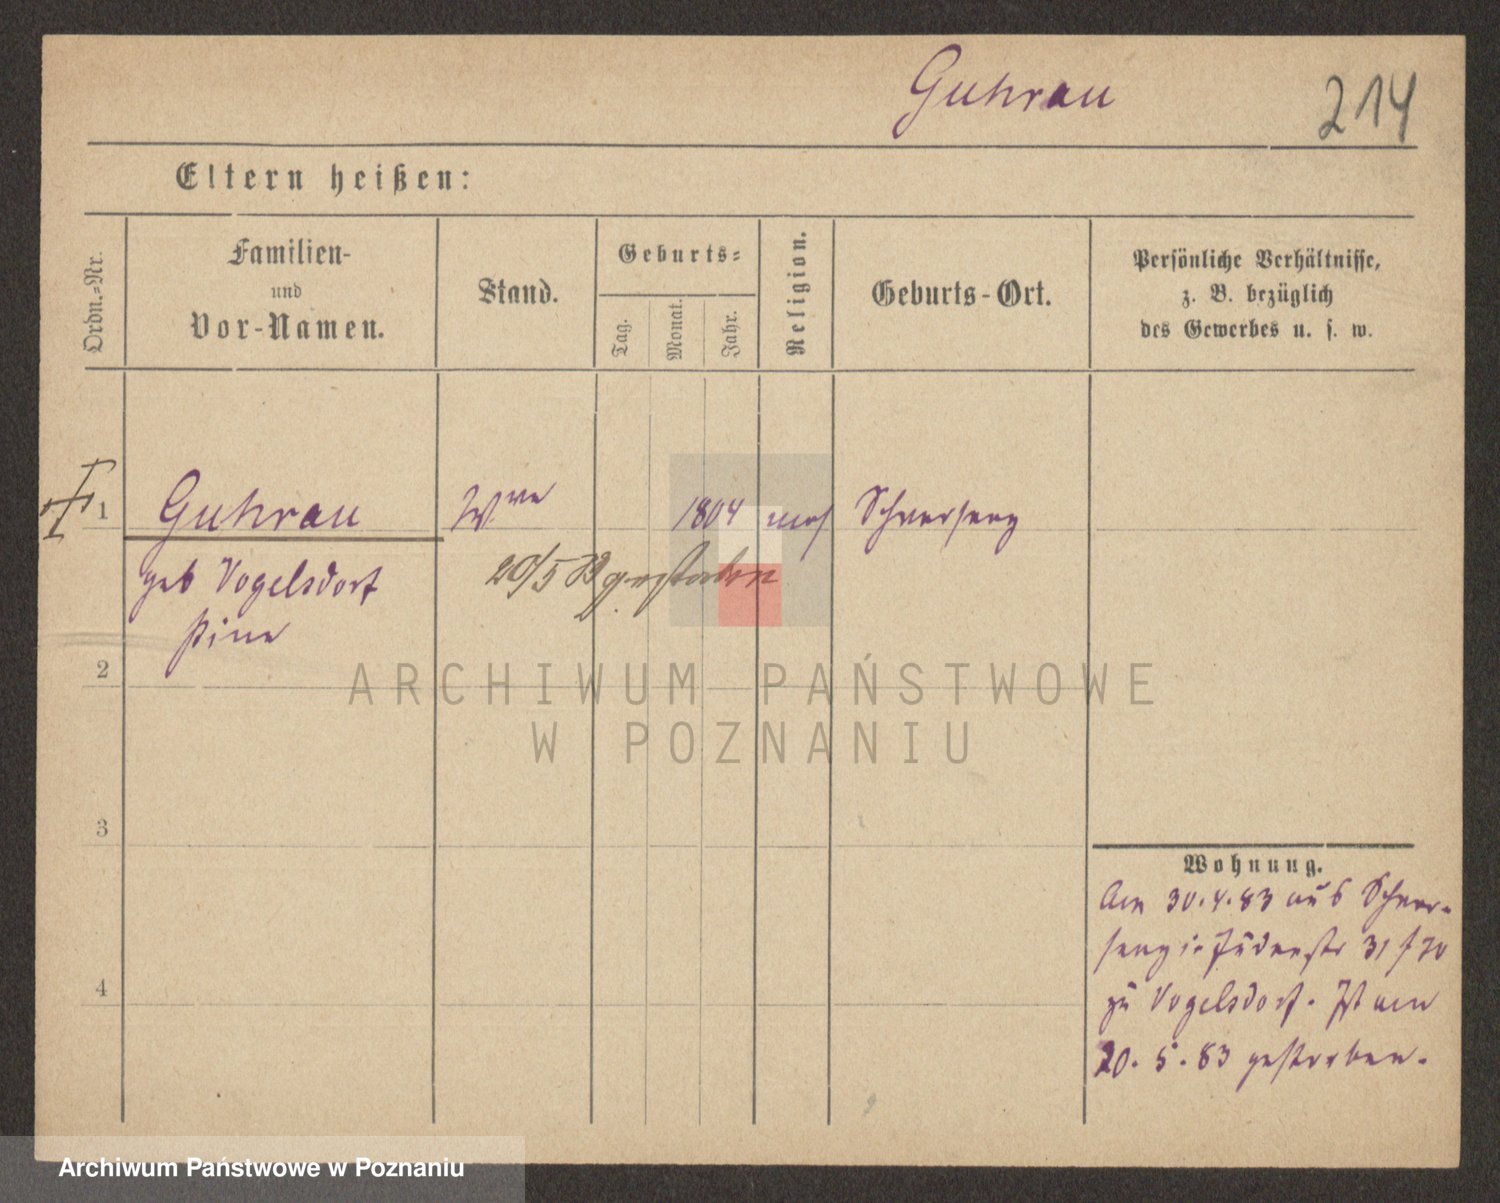 Guhrau
214
Eltern heißen:
Ordn.-Nr.
Familien-
und
Vor-Namen.
Stand.
Geburts-
Tag.
Monat.
Jahr.
Religion.
Geburts-Ort.
Persönliche Verhältnisse,
z. B. bezüglich
des Gewerbes u. s. w.
1
Guhrau
Wwe
1804
mos
Schwersenz
geb Vogelsdorf
20/5 83 gestorben
2
ARCHIWUM PAŃSTWOWE
W POZNANIU
3
4
Wohnung.
Am 30.4.83 aus Schwer-
senz Judenstr 31
zu Vogelsdorf. Ist am
20.5.83 gestorben.
Archiwum Państwowe w Poznaniu